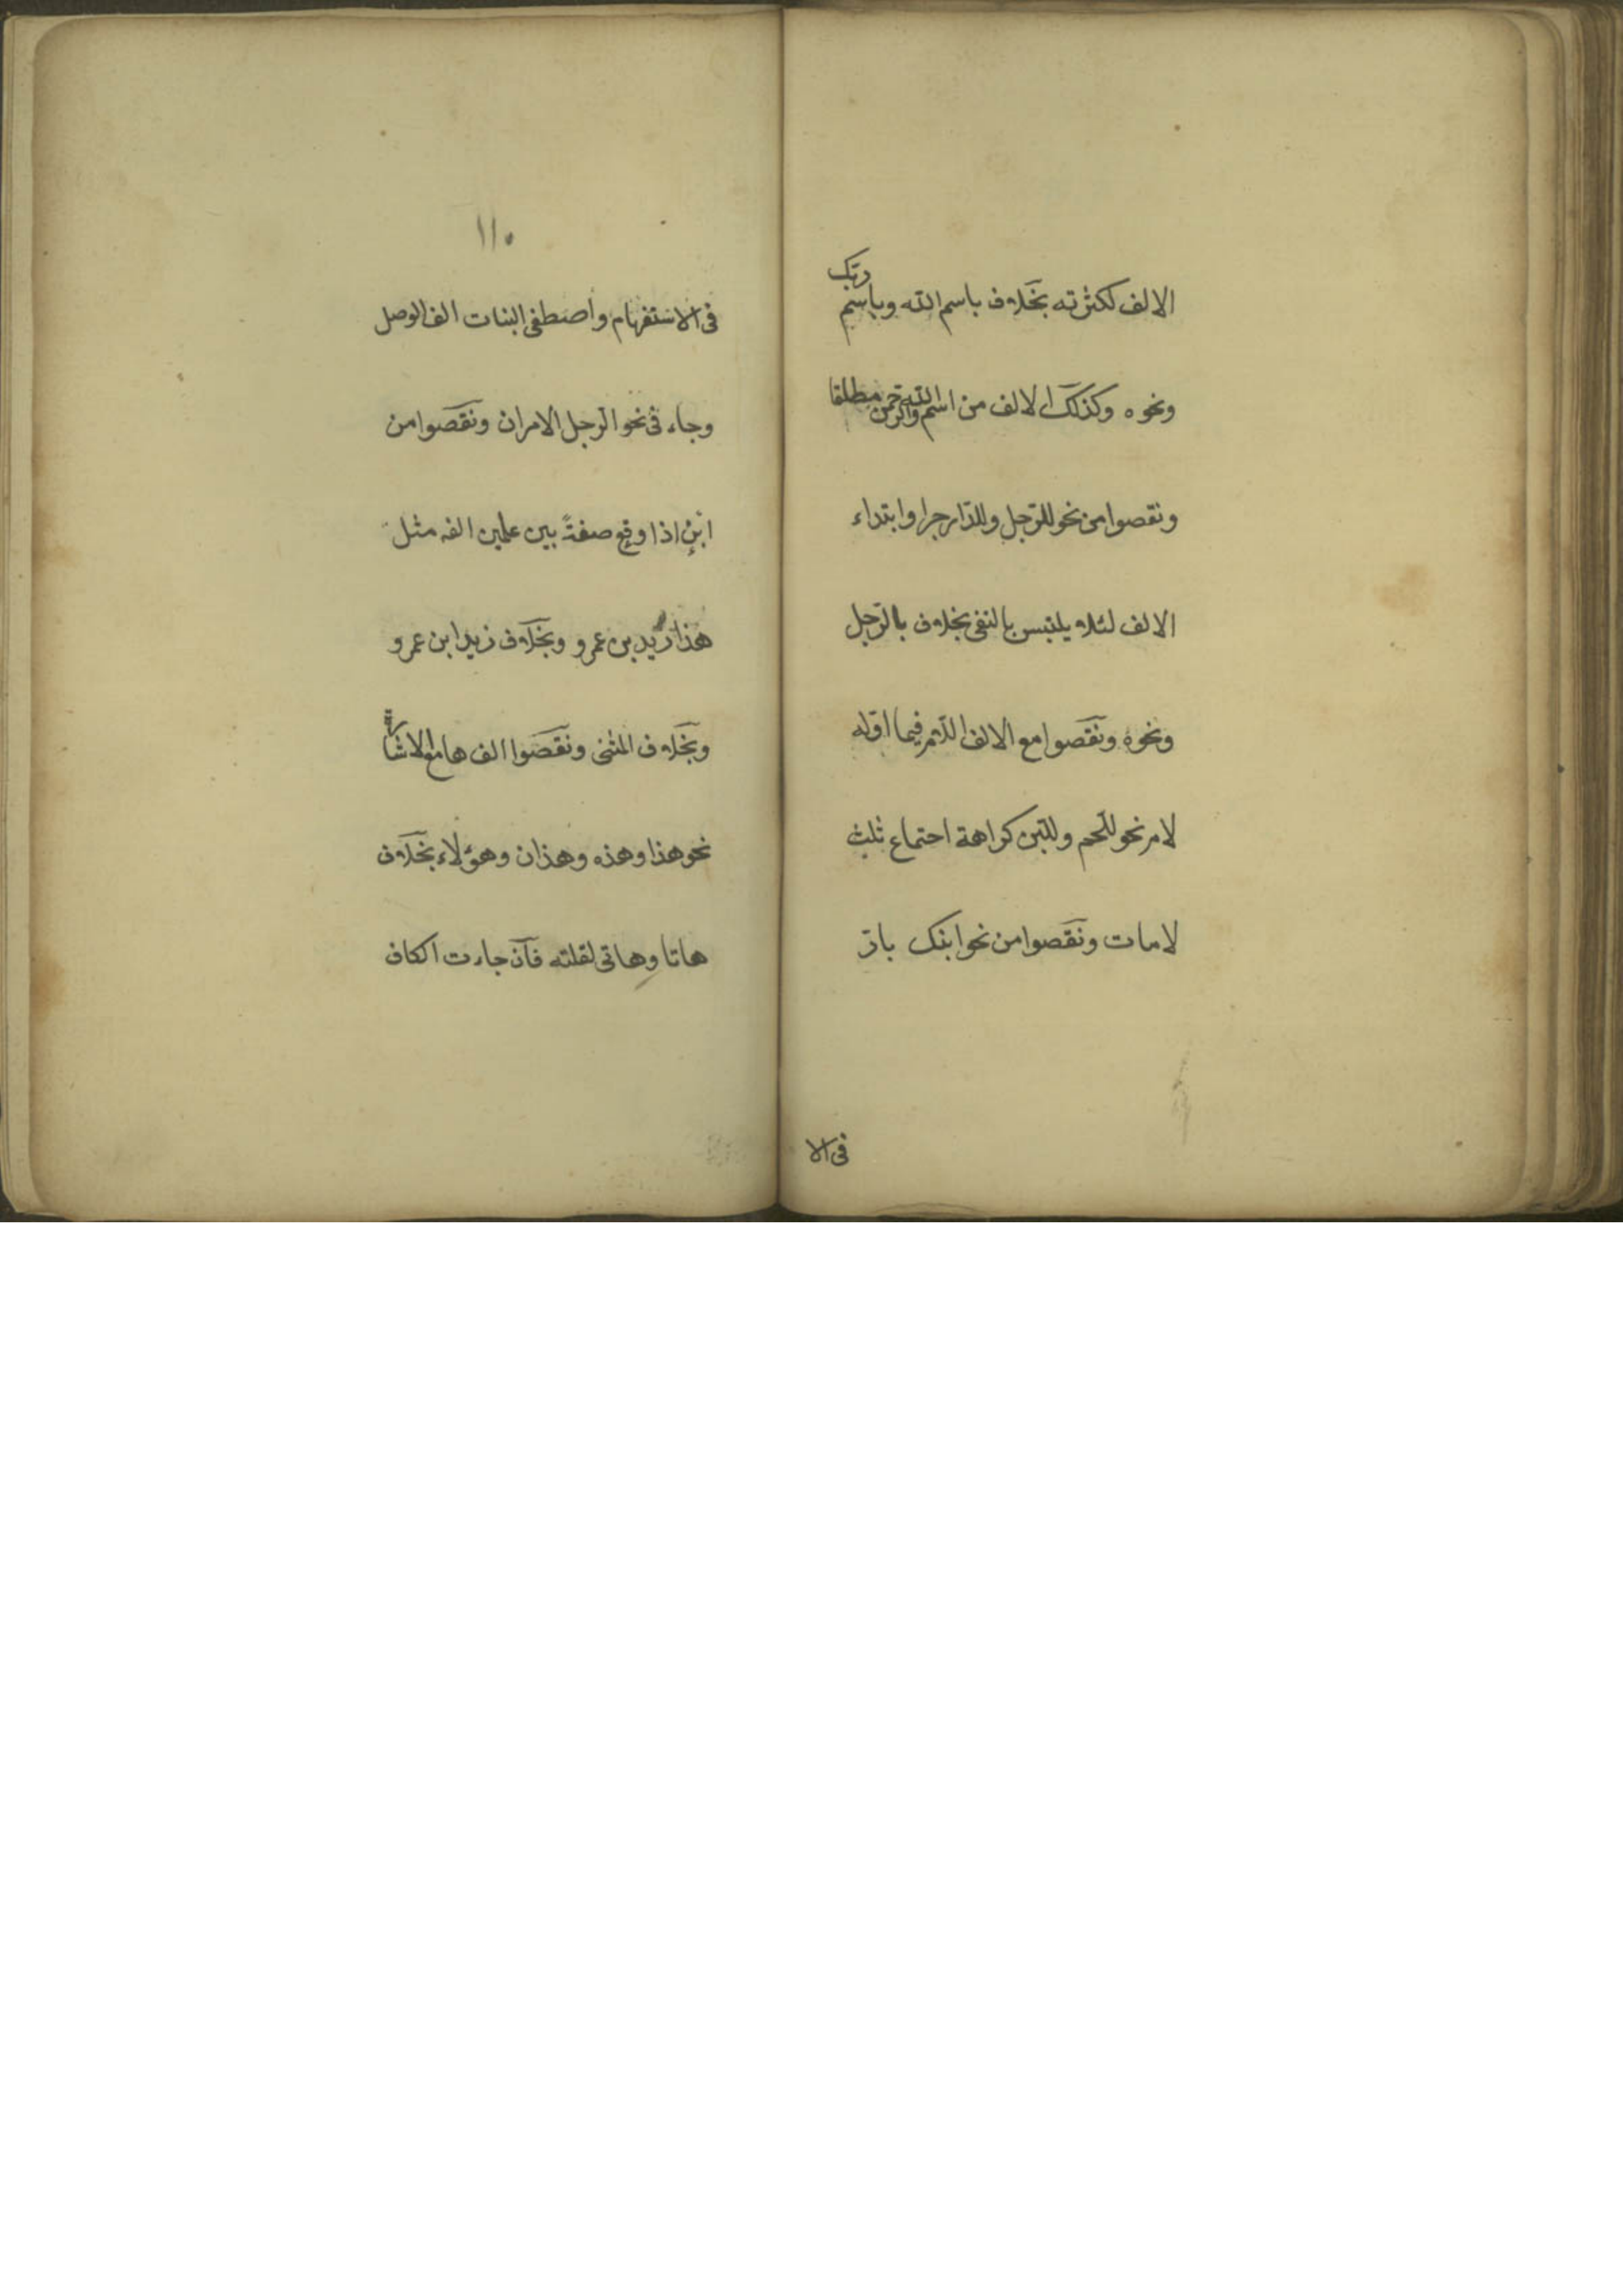 الالف لكثرته بخلاف باسم الله وباسم ربك
ونحوه وكذلك الالف من اسم الله والرحمن مطلقا
ونقصوا من نحو للرّجل وللدّار جرا وابتداء
الالف لئلا يلتبس بالنفى بخلاف بالرّجل
ونحوه ونقصوا مع الالف اللام فيما اوّله
لام نحو للّحم وللّبن كراهة اجتماع ثلث
لامات ونقصوا من نحو ابنك بارّ
فى الا
١١٠
فى الاستفهام واصطفى البنات الف الوصل
وجاء فى نحو الرجل الامران ونقصوا من
ابنٍ اذا وقع صفةً بين علمين الفه مثل
هذا زيد بن عمرو وبخلاف زيد ابن عمرو
وبخلاف المثنى ونقصوا الف ها مع الاشارة
نحو هذا وهذه وهذان وهؤلاء بخلاف
هاتا وهاتى لقلته فان جاءت الكاف